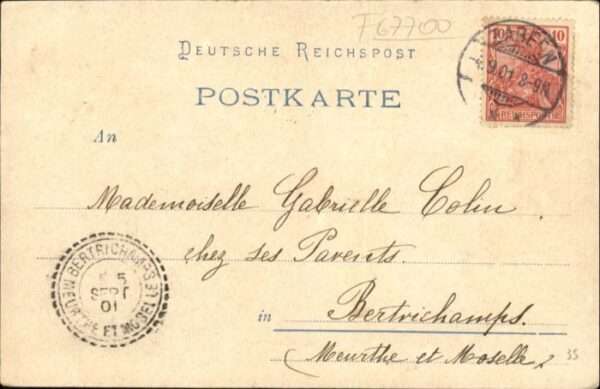 F67700
DEUTSCHE REICHSPOST
POSTKARTE
10 10
4.9.01.8-9N
REICHSPOST
An
Mademoiselle Gabrielle Cohn
chez ses Parents.
in Bertrichamps.
(Meurthe et Moselle)
35
BERTRICHAMPS
5
SEPT
01
MEURTHE ET MOSELLE